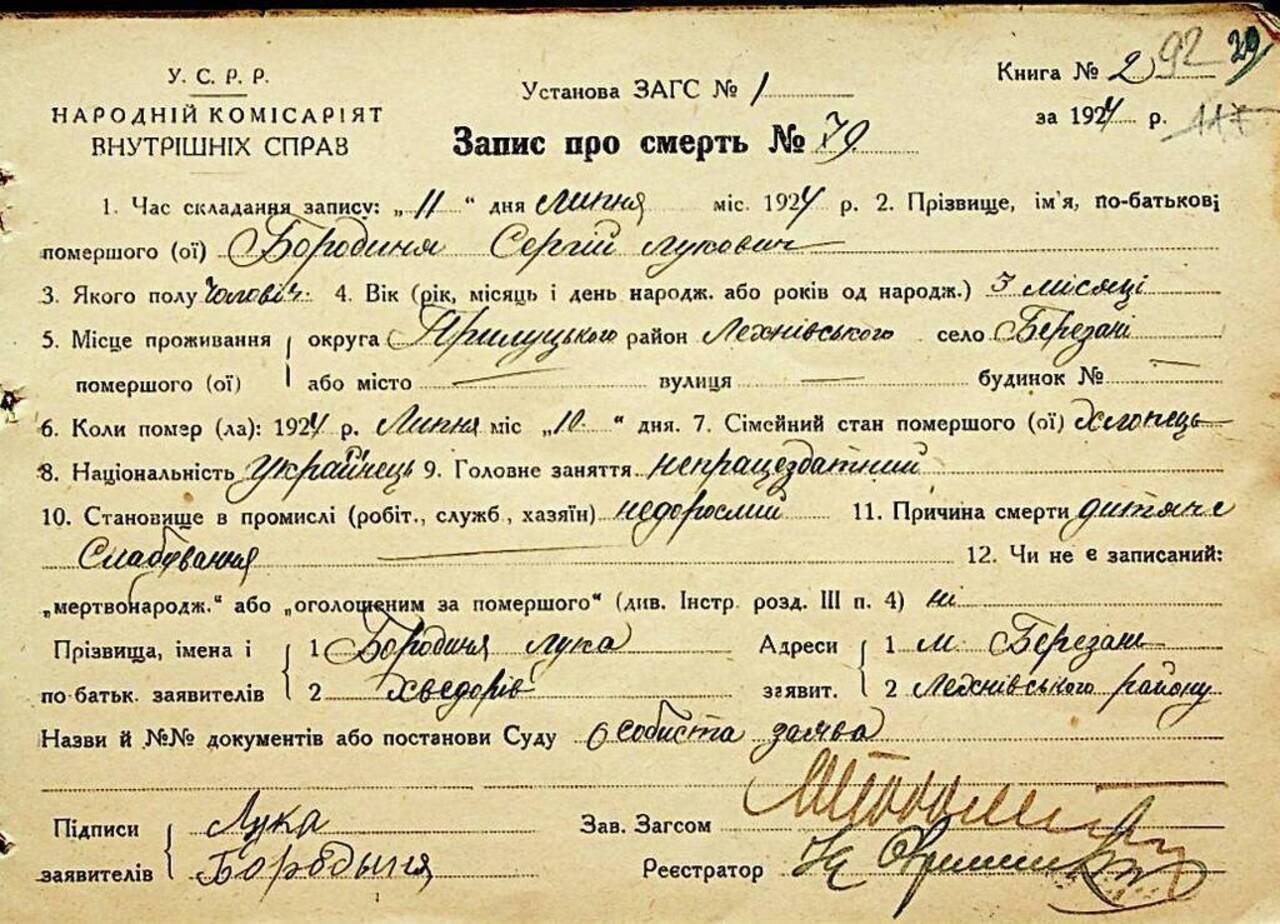 92 29
У. С. Р. Р.
НАРОДНІЙ КОМІСАРІЯТ
ВНУТРІШНІХ СПРАВ
Установа ЗАГС № 1
Книга № 2
за 1924 р.
Запис про смерть № 79
1. Час складання запису: „11“ дня Липня міс. 1924 р. 2. Прізвище, ім'я, по-батькові
помершого (ої) Бородиня Сергій Лукович
3. Якого полу Чоловіч. 4. Вік (рік, місяць і день народж. або років од народж.) 3 місяці
5. Місце проживання округа Прилуцького район Лехнівського село Березані
помершого (ої) або місто — вулиця — будинок № —
6. Коли помер (ла): 1924 р. Липня міс „10“ дня. 7. Сімейний стан помершого (ої) хлопець
8. Національність Українець 9. Головне заняття непрацездатний
10. Становище в промислі (робіт., служб., хазяїн) недорослий 11. Причина смерти дитяче
Слабування 12. Чи не є записаний:
„мертвонародж.“ або „оголошеним за помершого“ (див. Інстр. розд. III п. 4) ні
Прізвища, імена і 1 Бородиня Лука Адреси 1 м. Березани
по батьк. заявителів 2 Хведорів заявит. 2 Лехнівського району
Назви й №№ документів або постанови Суду Особиста заява
Підписи Лука Зав. Загсом
заявителів Бородыня Реєстратор